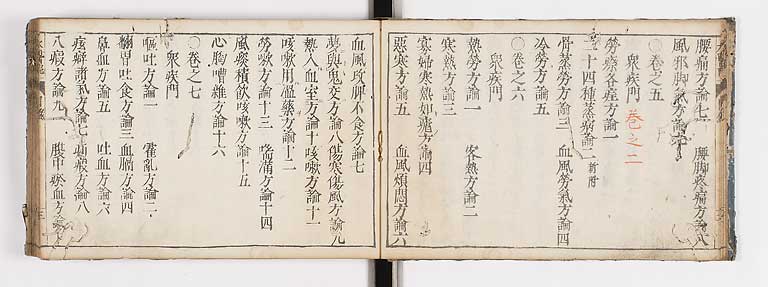 腰痛方論七 腰脚疼痛方論八
風邪脚氣方論
○卷之五
衆疾門 卷之二
勞瘵各症方論一
二十四種蒸病論二 方附
骨蒸勞方論三 血風勞氣方論四
冷勞方論五
○卷之六
衆疾門
熱勞方論一 客熱方論二
寒熱方論三
寡婦寒熱如瘧方論四
惡寒方論五 血風煩悶方論六
血風攻脾不食方論七
夢與鬼交方論八 傷寒傷風方論九
熱入血室方論十 咳嗽方論十一
咳嗽用溫藥方論十二
勞嗽方論十三 喘滿方論十四
風痰積飲咳嗽方論十五
心胸嘈雜方論十六
○卷之七
衆疾門
嘔吐方論一 霍亂方論二
翻胃吐食方論三 血膈方論四
鼻血方論五 吐血方論六
痃癖諸氣方論七 疝瘕方論八
八瘕方論九 腹中瘀血方論